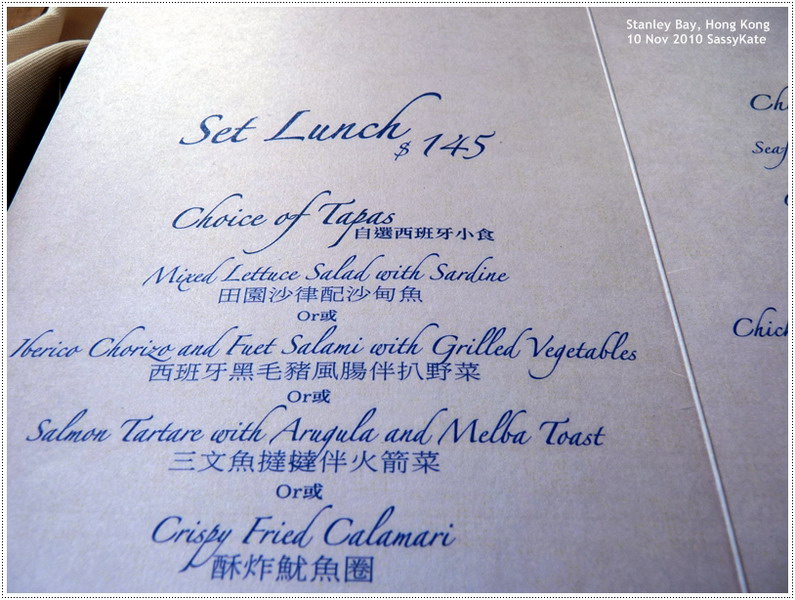 Stanley Bay, Hong Kong
10 Nov 2010 SassyKate
Set Lunch
$ 145
Choice of Tapas
自選西班牙小食
Mixed Lettuce Salad with Sardine
田園沙律配沙甸魚
Or或
Iberico Chorizo and Fuet Salami with Grilled Vegetables
西班牙黑毛豬風腸伴扒野菜
Or或
Salmon Tartare with Arugula and Melba Toast
三文魚撻撻伴火箭菜
Or或
Crispy Fried Calamari
酥炸魷魚圈